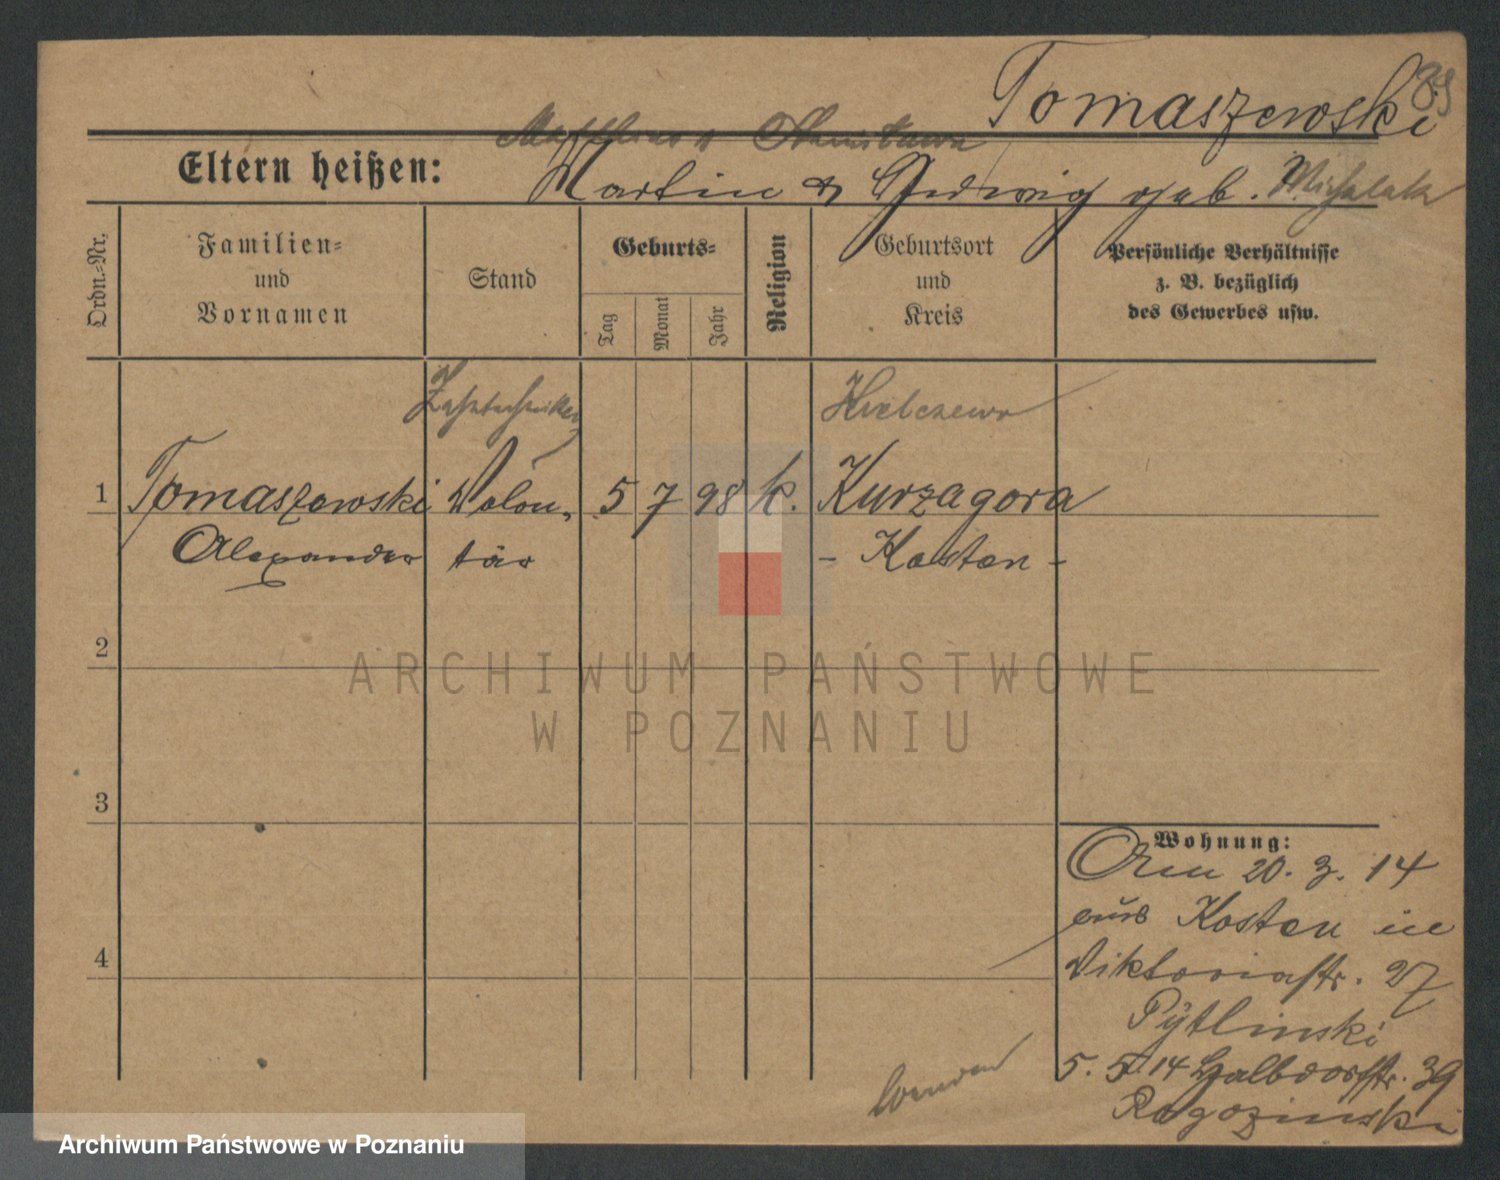 Tomaszewski
89
Matthias u Stanislawa
Eltern heißen: Martin u Hedwig geb. Michalak
Ordn.-Nr.
Familien-
und
Vornamen
Stand
Geburts-
Tag
Monat
Jahr
Religion
Geburtsort
und
Kreis
Persönliche Verhältnisse
z. B. bezüglich
des Gewerbes usw.
Zahntechniker
Kielczewo
1 Tomaszewski Volon- 5 7 98 k. Kurzagora
Alexander tär - Kosten -
2
3
4
Wohnung:
Am 20. 3. 14
aus Kosten in
Viktoriastr. 27
Pytlinski
5. 5. 14 Halbdorfstr. 39
Rogozinski
wenden
ARCHIWUM PAŃSTWOWE
W POZNANIU
Archiwum Państwowe w Poznaniu